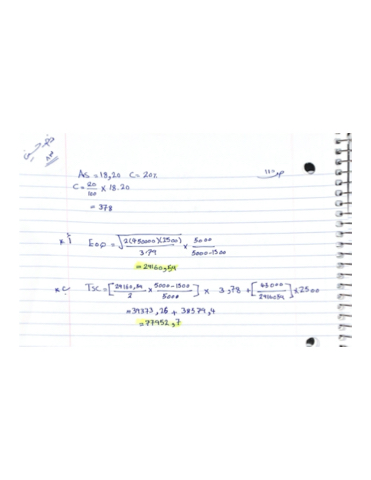 AS = 18,20 C = 20%
C = 20/100 × 18.20
= 378
EOP = √(2(450000)(2500)/3.79) × 5000/5000-1500
= 24160,54
TSC = [24160,54/2 × 5000-1500/5000] × 3,78 + [45000/2416054] × 2500
= 39373,26 + 38579,4
= 77952,7